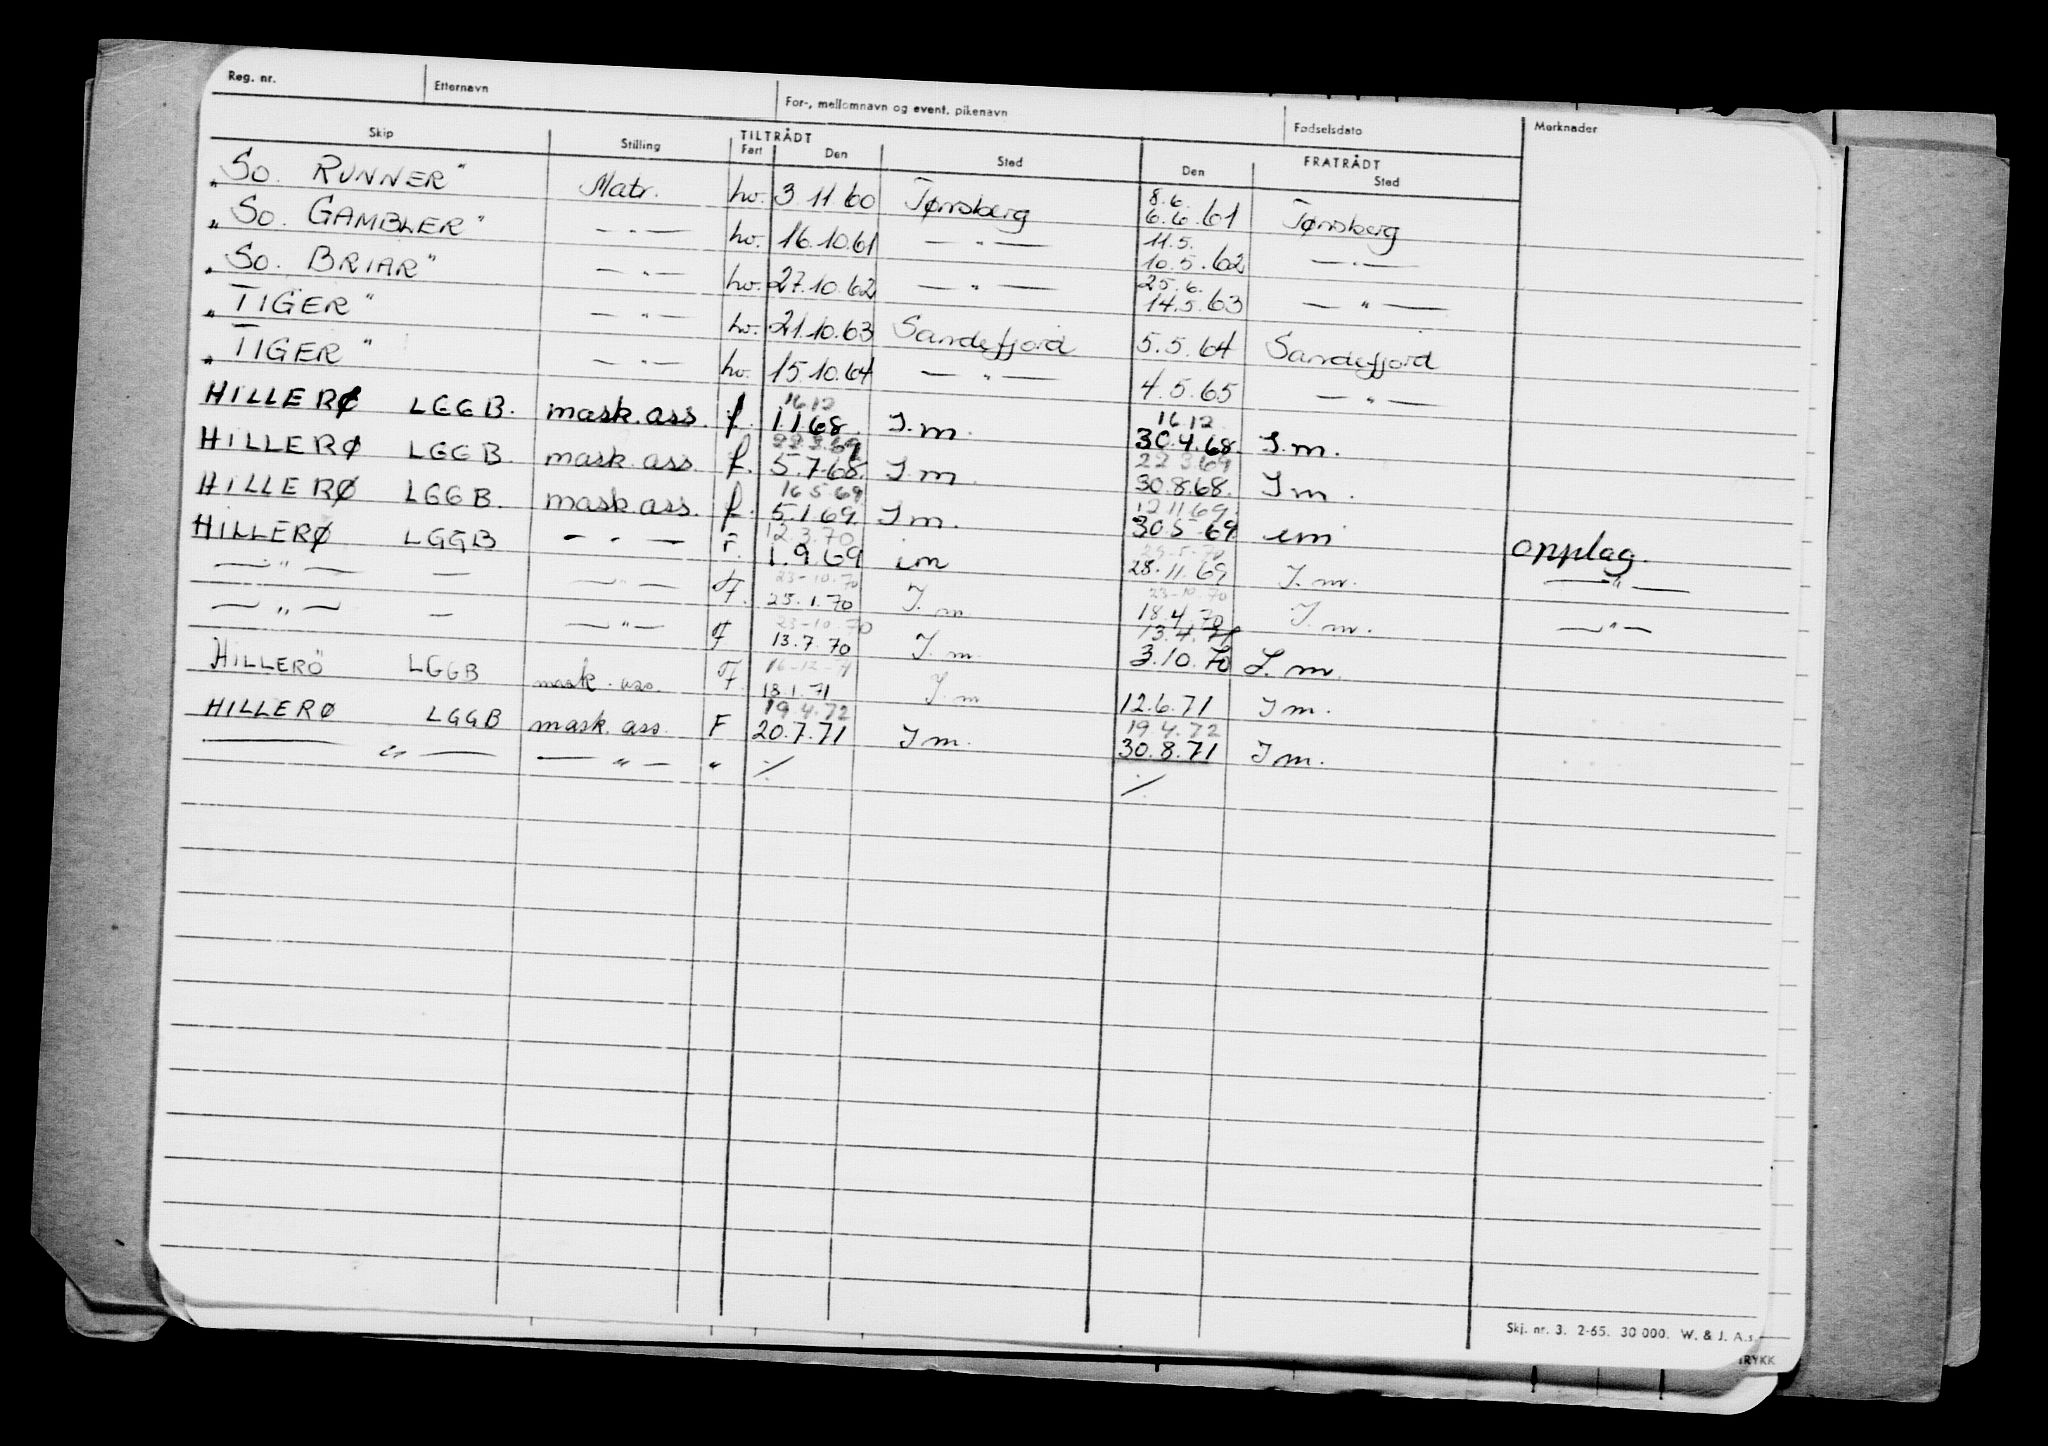 Reg. nr. Etternavn For-, mellomnavn og event. pikenavn Fødselsdato Merknader
TILTRÅDT FRATRÅDT
Skip Stilling Fart Den Sted Den Sted
"So. RUNNER" Matr. hv. 3.11.60 Tønsberg 8.6. 6.6.61 Tønsberg
"So. GAMBLER" — " — hv. 16.10.61 — " — 11.5. 10.5.62 — " —
"So. BRIAR" — " — hv. 27.10.62 — " — 25.6. 14.5.63 — " —
"TIGER" — " — hv. 21.10.63 Sandefjord 5.5.64 Sandefjord
"TIGER" — " — hv. 15.10.64 — " — 4.5.65 — " —
HILLERØ LGGB. mask.ass. f. 16 12 1.1.68. I.m. 16 12 30.4.68. I.m.
HILLERØ LGGB. mask.ass f. 22 3.69 5.7.68. I m. 22 3 69 30.8.68. I m.
HILLERØ LGGB. mask.ass. f. 16 5 69 5.1.69. I m. 12 11 69. 30.5.69 im
HILLERØ LGGB — " — F. 12.3.70 1.9.69 im 28.11.69 I.m. opplag.
— " — — — " — F. 23-10.70 25.1.70 I.m. 23-10.70 18.4.70 I.m. — " —
— " — — — " — F 23-10.70 13.7.70 I.m. 13.4.71 3.10.70 I.m. — " —
HILLERÖ LGGB mask.ass. F. 16-12-71 18.1.71 I.m 12.6.71 I m.
HILLERØ LGGB mask.ass. F 19.4.72 20.7.71 I m. 19 4.72 30.8.71 I m.
— " — — " — " ./. ./.
Skj. nr. 3. 2-65. 30 000. W. & J. A.s.
TRYKK